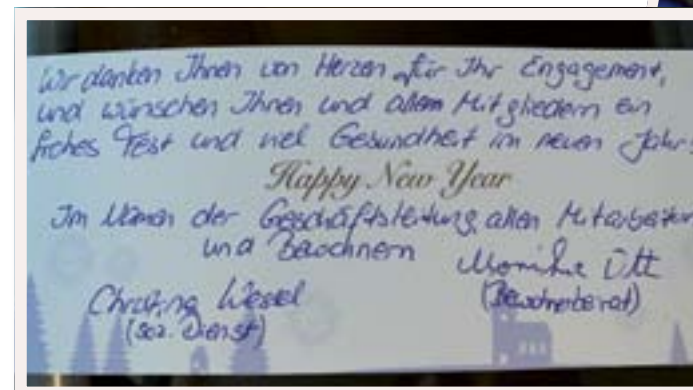 Wir danken Ihnen von Herzen für Ihr Engagement,
und wünschen Ihnen und allen Mitgliedern ein
frohes Fest und viel Gesundheit im neuen Jahr
Happy New Year
Im Namen der Geschäftsleitung, allen Mitarbeitern
und Bewohnern
Monika
Christina Wessel
(Bewohnerbeirat)
(soz. Dienst)